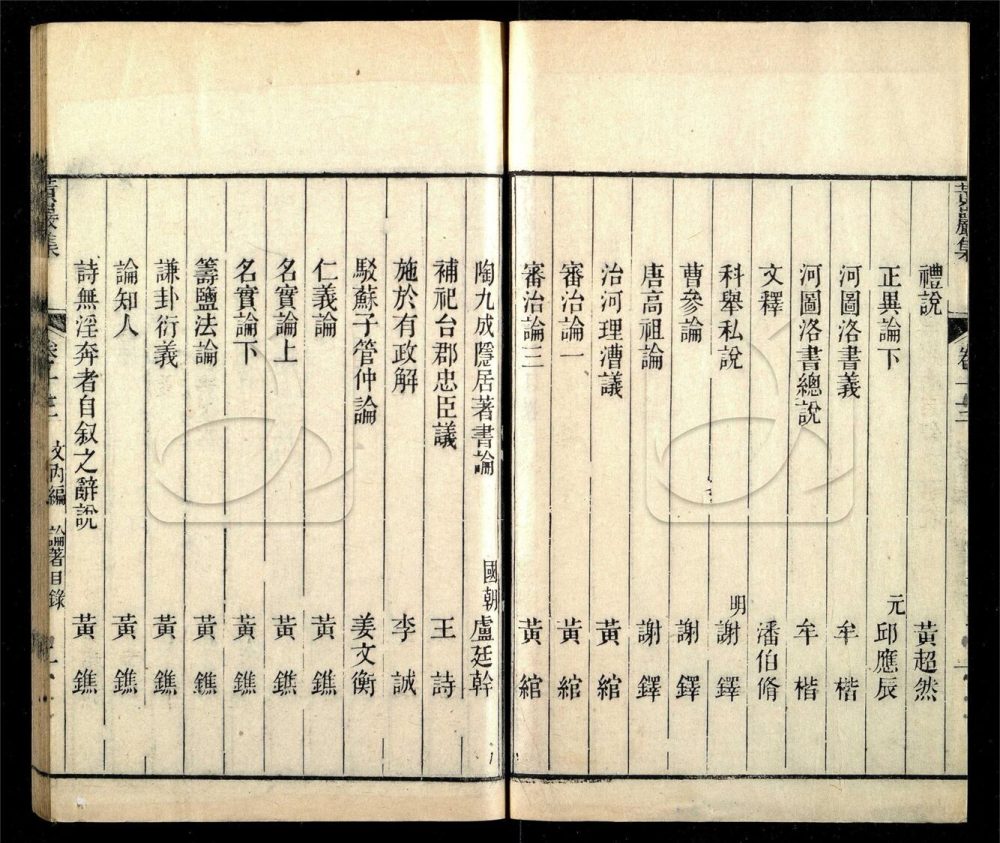 黃巖集
禮說 黃超然
正異論下 元 邱應辰
河圖洛書義 牟楷
河圖洛書總說 牟楷
文釋 潘伯脩
科舉私說 明 謝鐸
曹參論 謝鐸
唐高祖論 謝鐸
治河理漕議 黃綰
審治論一 黃綰
審治論三 黃綰
陶九成隱居著書論 國朝 盧廷幹
補祀台郡忠臣議 王詩
施於有政解 李誠
駁蘇子管仲論 姜文衡
仁義論 黃鐎
名實論上 黃鐎
名實論下 黃鐎
籌鹽法論 黃鐎
謙卦衍義 黃鐎
論知人 黃鐎
詩無淫奔者自叙之辭說 黃鐎
黃巖集 卷十三 文內編 論著目錄